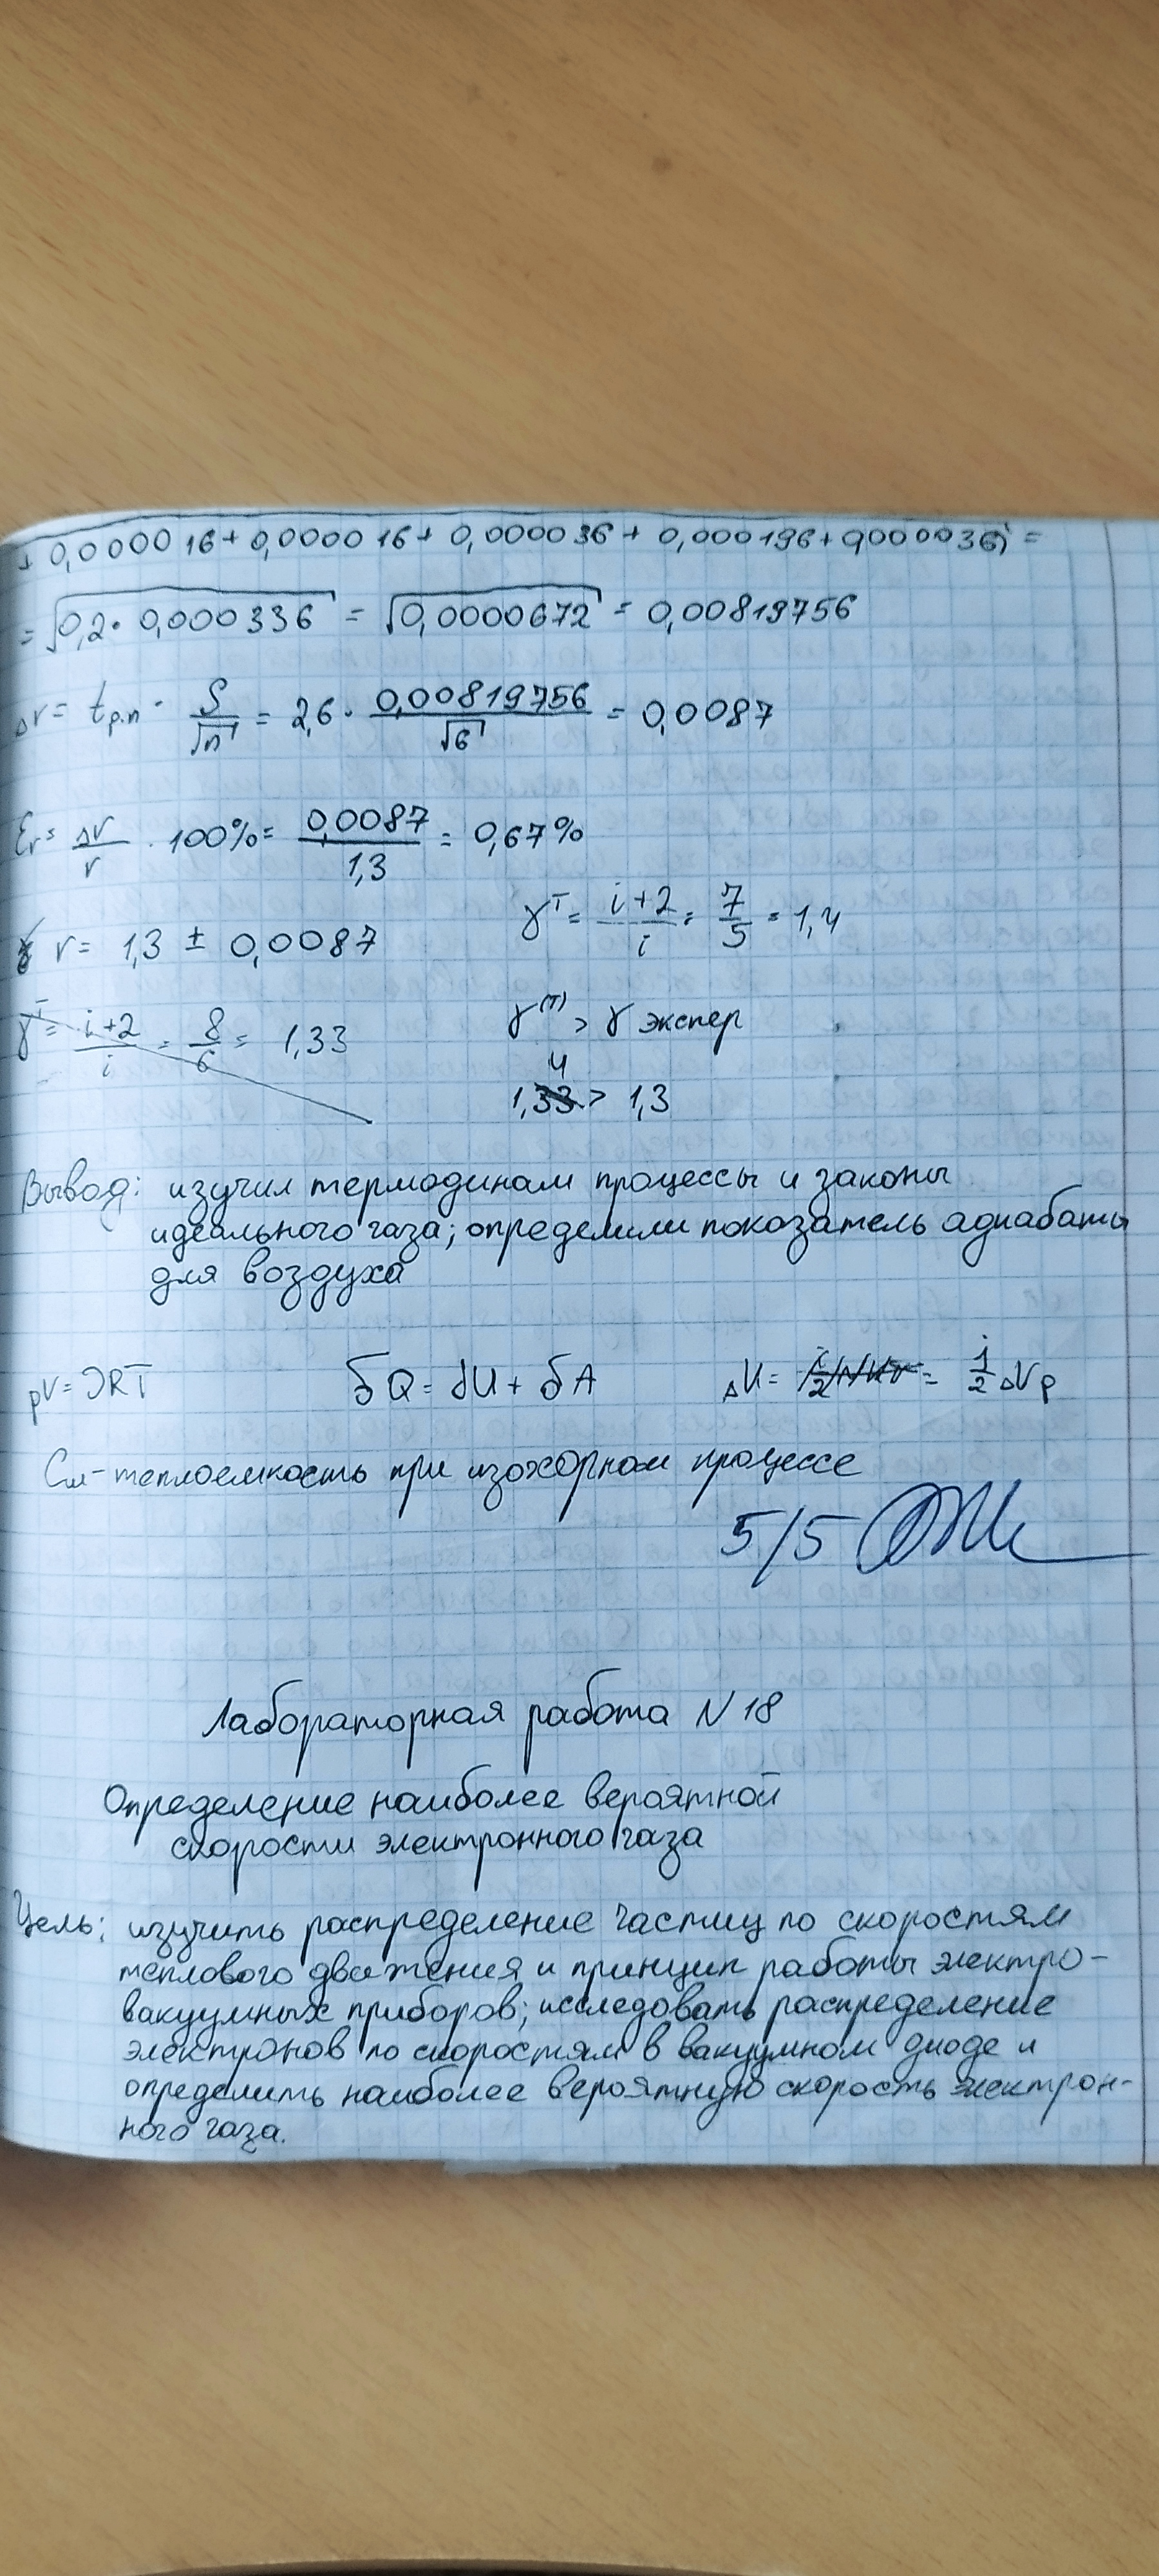 + 0,000016 + 0,000016 + 0,000036 + 0,000196 + 0,000036) =
= √(0,2 · 0,000336) = √(0,0000672) = 0,00819756
Δr = tp.n · S/√n = 2,6 · 0,00819756/√6 = 0,0087
Er = Δr/r · 100% = 0,0087/1,3 = 0,67%
γᵀ = (i+2)/i = 7/5 = 1,4
r = 1,3 ± 0,0087
γᵀ = (i+2)/i = 8/6 = 1,33
γ⁽ᵀ⁾ > γ экспер
4
1,33 > 1,3
Вывод: изучил термодинам процессы и законы
идеального газа; определили показатель адиабаты
для воздуха
pV = νRT δQ = dU + δA ΔU = i/2 νRT = i/2 ΔVp
См-теплоемкость при изохорном процессе
5/5
Лабораторная работа N 18
Определение наиболее вероятной
скорости электронного газа
Цель: изучить распределение частиц по скоростям
теплового движения и принцип работы электро-
вакуумных приборов; исследовать распределение
электронов по скоростям в вакуумном диоде и
определить наиболее вероятную скорость электрон-
ного газа.